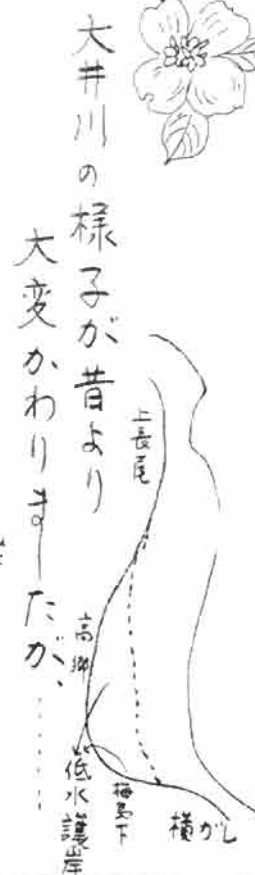 大井川の様子が昔より
大変かわりましたが、……
上長尾
高郷
低水護岸
梅島下
横がし